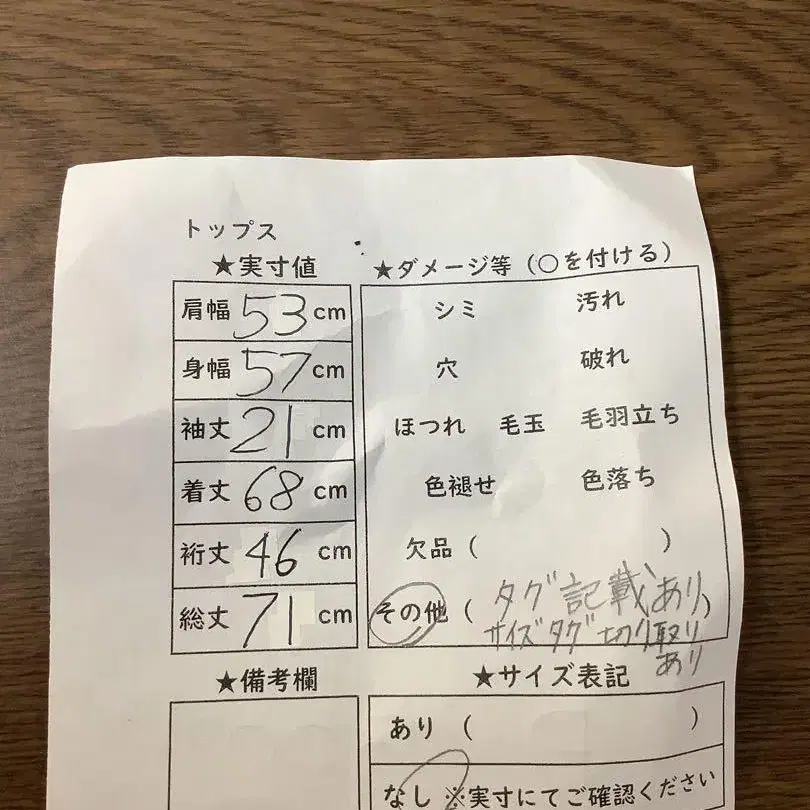 トップス
★実寸値
肩幅 53 cm
身幅 57 cm
袖丈 21 cm
着丈 68 cm
裄丈 46 cm
総丈 71 cm
★ダメージ等（○を付ける）
シミ 汚れ
穴 破れ
ほつれ 毛玉 毛羽立ち
色褪せ 色落ち
欠品（ ）
その他（タグ記載あり）
サイズタグ切り取り
あり
★備考欄
★サイズ表記
あり（ ）
なし ※実寸にてご確認ください